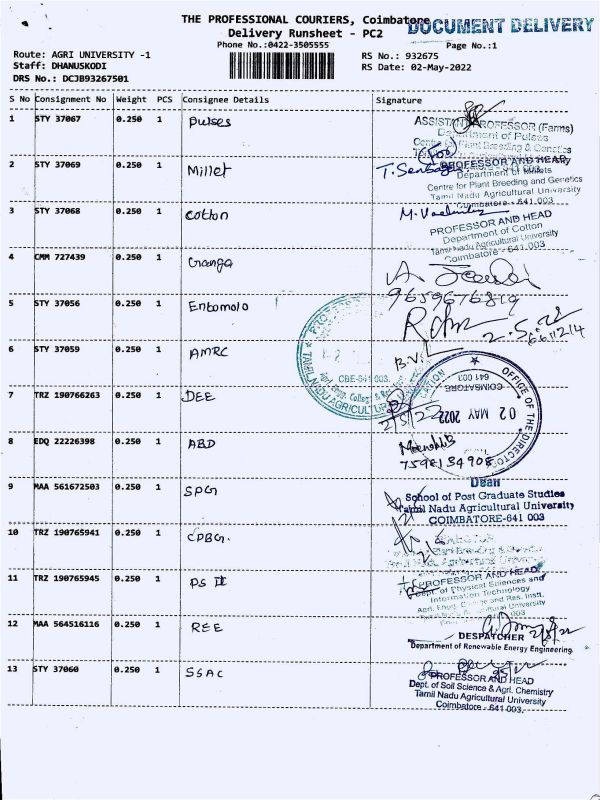 THE PROFESSIONAL COURIERS, Coimbatore
DOCUMENT DELIVERY
Delivery Runsheet - PC2
Phone No.:0422-3505555
Page No.:1
Route: AGRI UNIVERSITY -1
RS No.: 932675
Staff: DHANUSKODI
RS Date: 02-May-2022
DRS No.: DCJB93267501
S No Consignment No Weight PCS Consignee Details Signature
1 STY 37067 0.250 1 Pulses
ASSISTANT PROFESSOR (Farms)
Department of Pulses
Centre for Plant Breeding & Genetics
2 STY 37069 0.250 1 Millet
(For) PROFESSOR AND HEAD
Department of Millets
Centre for Plant Breeding and Genetics
Tamil Nadu Agricultural University
Coimbatore - 641 003
3 STY 37068 0.250 1 Cotton
PROFESSOR AND HEAD
Department of Cotton
Tamil Nadu Agricultural University
Coimbatore - 641 003
4 CMM 727439 0.250 1 Ganga
9659676819
5 STY 37056 0.250 1 Entomolo
2.5.22
6 STY 37059 0.250 1 AMRC
B.V.
TAMIL NADU AGRICULTURAL
CBE-641 003.
7 TRZ 190766263 0.250 1 DEE
2/5/22
OFFICE OF THE DIRECTOR
COIMBATORE
641 003
02 MAY 2022
8 EDQ 22226398 0.250 1 ABD
7598134908
9 MAA 561672503 0.250 1 SPG
Dean
School of Post Graduate Studies
Tamil Nadu Agricultural University
COIMBATORE-641 003
10 TRZ 190765941 0.250 1 CPBG.
DIRECTOR
11 TRZ 190765945 0.250 1 PS IT
PROFESSOR AND HEAD
Dept. of Physical Sciences and
Information Technology
12 MAA 564516116 0.250 1 REE
DESPATCHER 2/5/22
Department of Renewable Energy Engineering
13 STY 37060 0.250 1 SSAC
PROFESSOR AND HEAD
Dept. of Soil Science & Agrl. Chemistry
Tamil Nadu Agricultural University
Coimbatore - 641 003.